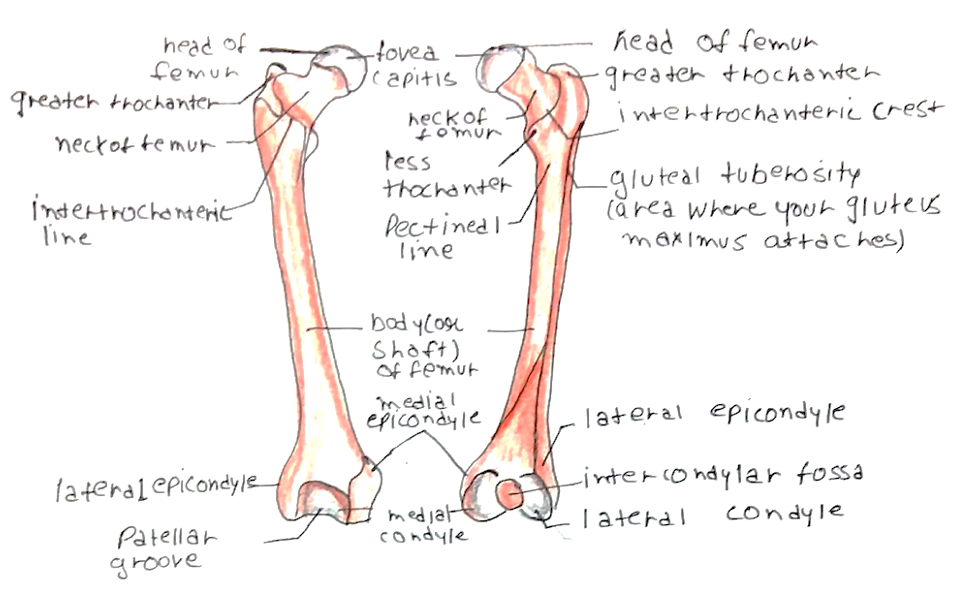 head of
femur
greater trochanter
neck of femur
intertrochanteric
line
fovea
capitis
neck of
femur
less
trochanter
Pectineal
line
head of femur
greater trochanter
intertrochanteric crest
gluteal tuberosity
(area where your gluteus
maximus attaches)
body(or
shaft)
of femur
medial
epicondyle
lateral epicondyle
Patellar
groove
medial
condyle
lateral epicondyle
intercondylar fossa
lateral condyle